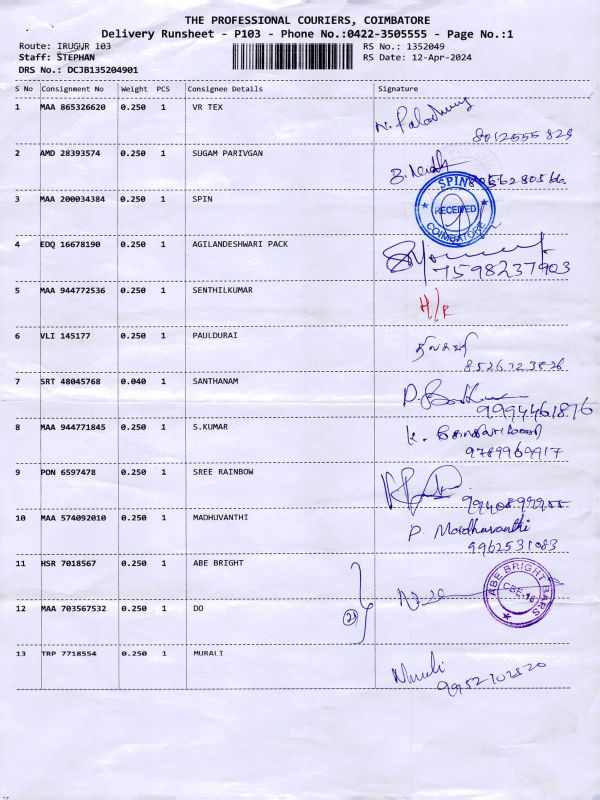 THE PROFESSIONAL COURIERS, COIMBATORE
Delivery Runsheet - P103 - Phone No.:0422-3505555 - Page No.:1
Route: IRUGUR 103 RS No.: 1352049
Staff: STEPHAN RS Date: 12-Apr-2024
DRS No.: DCJB135204901
S No Consignment No Weight PCS Consignee Details Signature
1 MAA 865326620 0.250 1 VR TEX
8012555829
2 AMD 28393574 0.250 1 SUGAM PARIVGAN
8056280566
3 MAA 200034384 0.250 1 SPIN SPIN RECEIVED COIMBATORE
4 EDQ 16678190 0.250 1 AGILANDESHWARI PACK
7598237903
5 MAA 944772536 0.250 1 SENTHILKUMAR H/R
6 VLI 145177 0.250 1 PAULDURAI
7 SRT 48045768 0.040 1 SANTHANAM
9994461876
8 MAA 944771845 0.250 1 S.KUMAR
9789969917
9 PON 6597478 0.250 1 SREE RAINBOW
10 MAA 574092010 0.250 1 MADHUVANTHI P. Madhuvanthi
9962531083
11 HSR 7018567 0.250 1 ABE BRIGHT ABE BRIGHT BARS CBE-16
12 MAA 703567532 0.250 1 DO (2)
13 TRP 7718554 0.250 1 MURALI Murali
9952102820